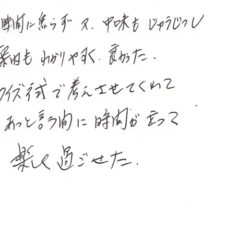 時間に焦らず、中味もじゅうじつし
案内もわかりやすく、良かった。
クイズ形式で考えさせてくれて
あっと言う間に時間が立って
楽しく過ごせた。